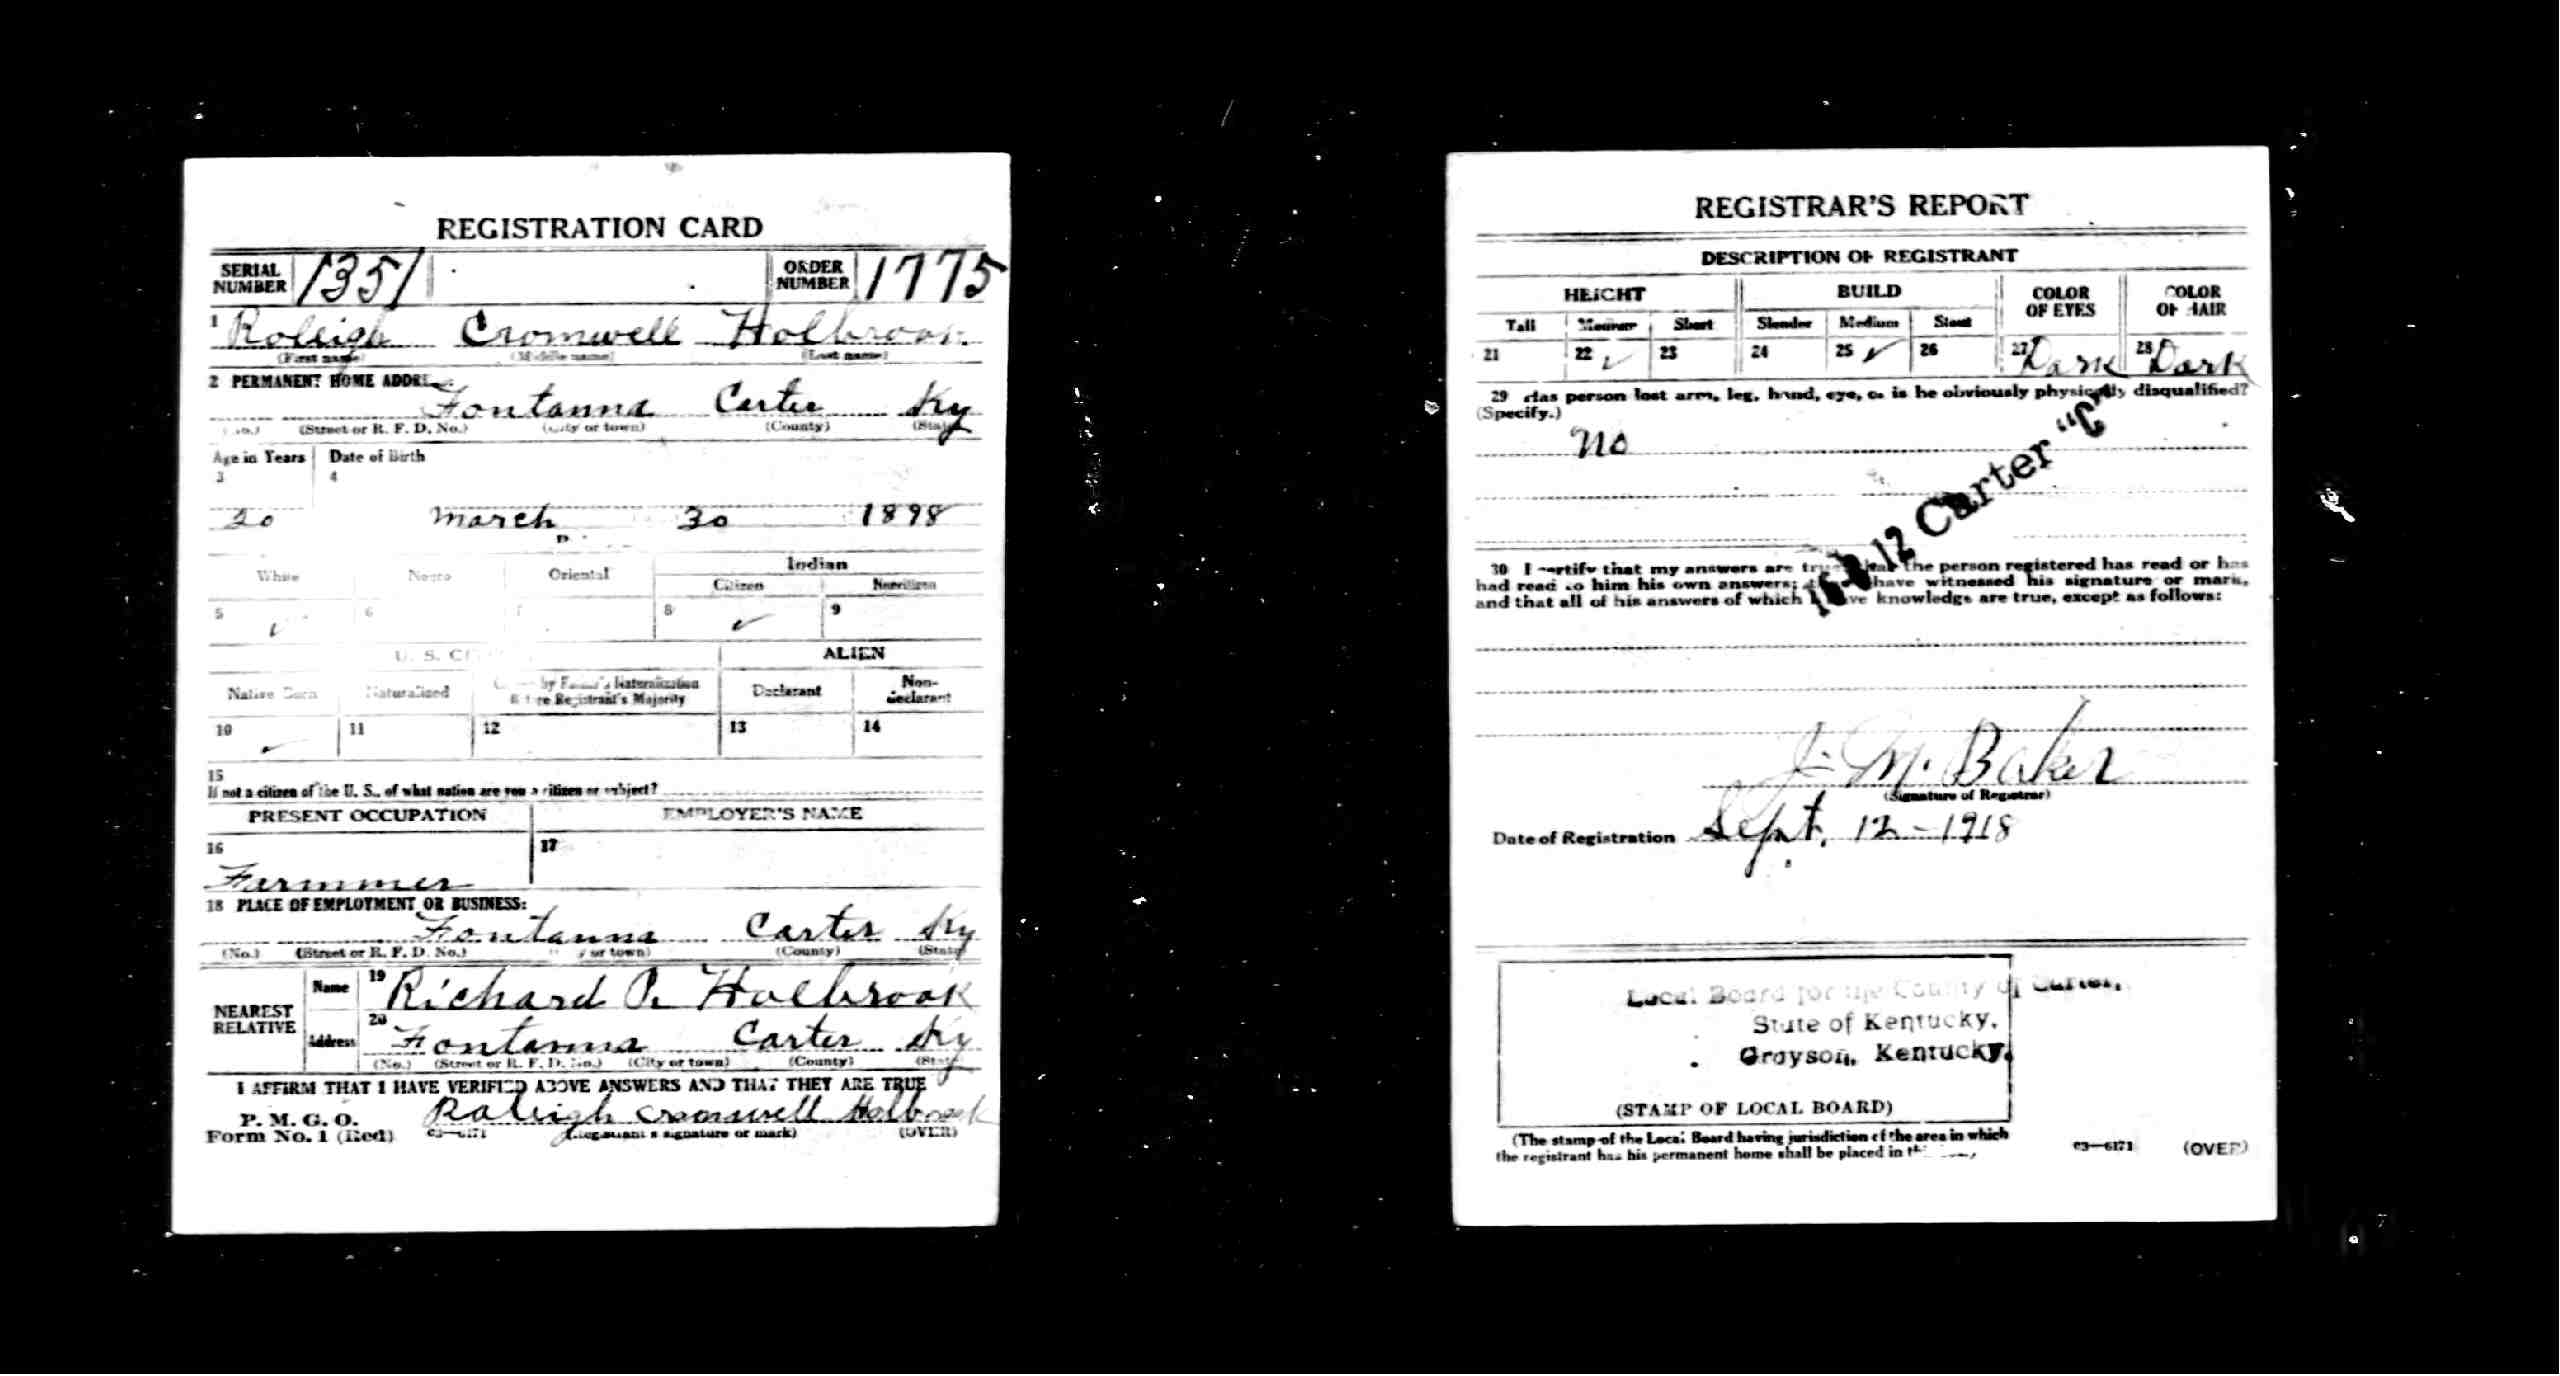 REGISTRATION CARD
SERIAL NUMBER 1351 ORDER NUMBER 1775
1 Roleigh Cromwell Holbrook
(First name) (Middle name) (Last name)
2 PERMANENT HOME ADDRESS:
Fontanna Carter Ky
(No.) (Street or R. F. D. No.) (City or town) (County) (State)
Age in Years Date of Birth
3 4
20 March 30 1898
Indian
White Negro Oriental Citizen Noncitizen
5 ✓ 6 7 8 ✓ 9
U. S. ALIEN
Native Born Naturalized by Father's Naturalization Before Registrant's Majority Declarant Non-declarant
10 ✓ 11 12 13 14
15
If not a citizen of the U. S., of what nation are you a citizen or subject?
PRESENT OCCUPATION EMPLOYER'S NAME
16 17
Farmmer
18 PLACE OF EMPLOYMENT OR BUSINESS:
Fontanna Carter Ky
(No.) (Street or R. F. D. No.) (City or town) (County) (State)
NEAREST RELATIVE Name 19 Richard P. Holbrook
Address 20 Fontanna Carter Ky
(No.) (Street or R. F. D. No.) (City or town) (County) (State)
I AFFIRM THAT I HAVE VERIFIED ABOVE ANSWERS AND THAT THEY ARE TRUE
P. M. G. O.
Form No. 1 (Red) 03—6171 Raleigh Cromwell Holbrook
(Registrant's signature or mark) (OVER)
REGISTRAR'S REPORT
DESCRIPTION OF REGISTRANT
HEIGHT BUILD COLOR OF EYES COLOR OF HAIR
Tall Medium Short Slender Medium Stout
21 22 ✓ 23 24 25 ✓ 26 27 Dark 28 Dark
29 Has person lost arm, leg, hand, eye, or is he obviously physically disqualified?
(Specify.)
No
12 Carter "C"
30 I certify that my answers are true; that the person registered has read or has
had read to him his own answers; that I have witnessed his signature or mark,
and that all of his answers of which I have knowledge are true, except as follows:
J. M. Baker
(Signature of Registrar)
Date of Registration Sept. 12-1918
Local Board for the County of Carter,
State of Kentucky,
Grayson, Kentucky.
(STAMP OF LOCAL BOARD)
(The stamp of the Local Board having jurisdiction of the area in which
the registrant has his permanent home shall be placed in
03—6171 (OVER)